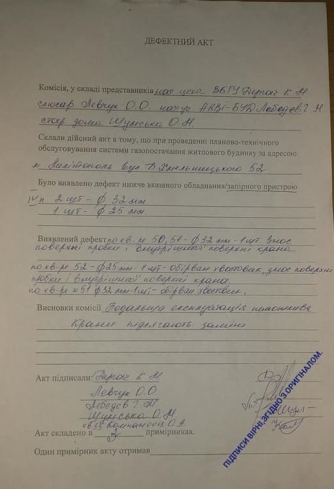 ДЕФЕКТНИЙ АКТ
Комісія, у складі представників нач цеха ВБГУ К М
слюсар Левчук О.О. нач уч АКВІ-БУД Лебодєв Г
О.М.
Склали дійсний акт в тому, що при проведенні планово-технічного
обслуговування системи газопостачання житлового будинку за адресою:
м. вул Б. Хмельницького 52
Було виявлено дефект нижче вказаного обладнання/запірного пристрою
2 шт - ф 32 мм
1 шт - ф 25 мм
Виявлений дефект по кв. м 50, 51 - ф 32 мм - 1 шт. знос
поверхні пробки і внутрішньої поверхні крана
по кв. м 52 - ф 25 мм - 1 шт - обірван хвостовик, знос поверхні
пробки і внутрішньої поверхні крана.
по кв. м 51 ф 32 мм 1 шт - обірван хвостовик.
Висновки комісії Подальша експлуатація неможлива
Крани підлягають заміни
Акт підписали К М
Левчук О О
Лебедєв Г.
О М
О.А.
Акт складено в 3 примірниках.
Один примірник акту отримав
ПІДПИСИ ВІРНІ, ЗГІДНО З ОРИГІНАЛОМ